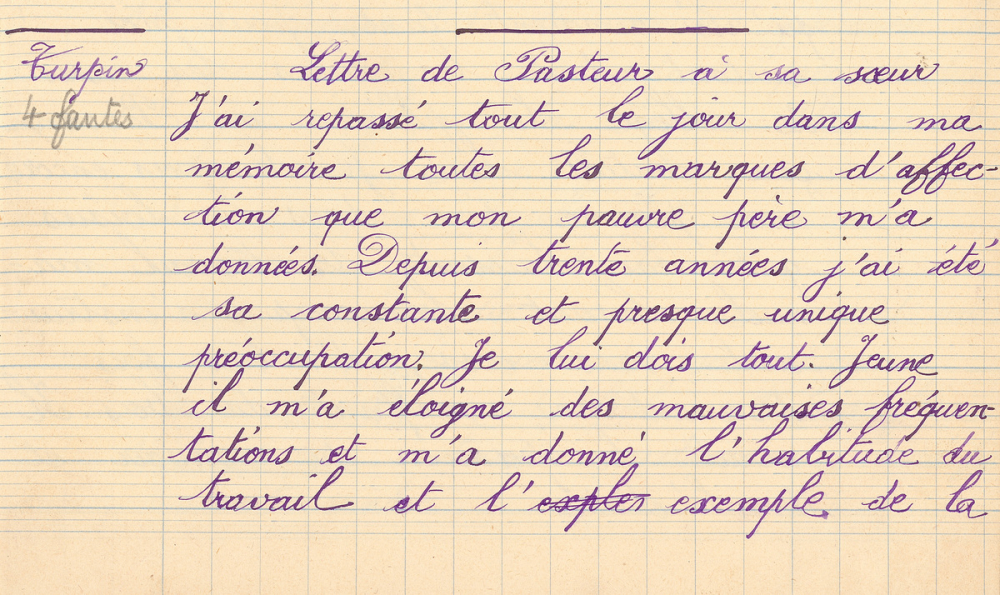 Turpin
4 fautes
Lettre de Pasteur à sa sœur
J'ai repassé tout le jour dans ma
mémoire toutes les marques d'affec-
tion que mon pauvre père m'a
données. Depuis trente années j'ai été
sa constante et presque unique
préoccupation. Je lui dois tout. Jeune
il m'a éloigné des mauvaises fréquen-
tations et m'a donné l'habitude du
travail et l' exemple de la